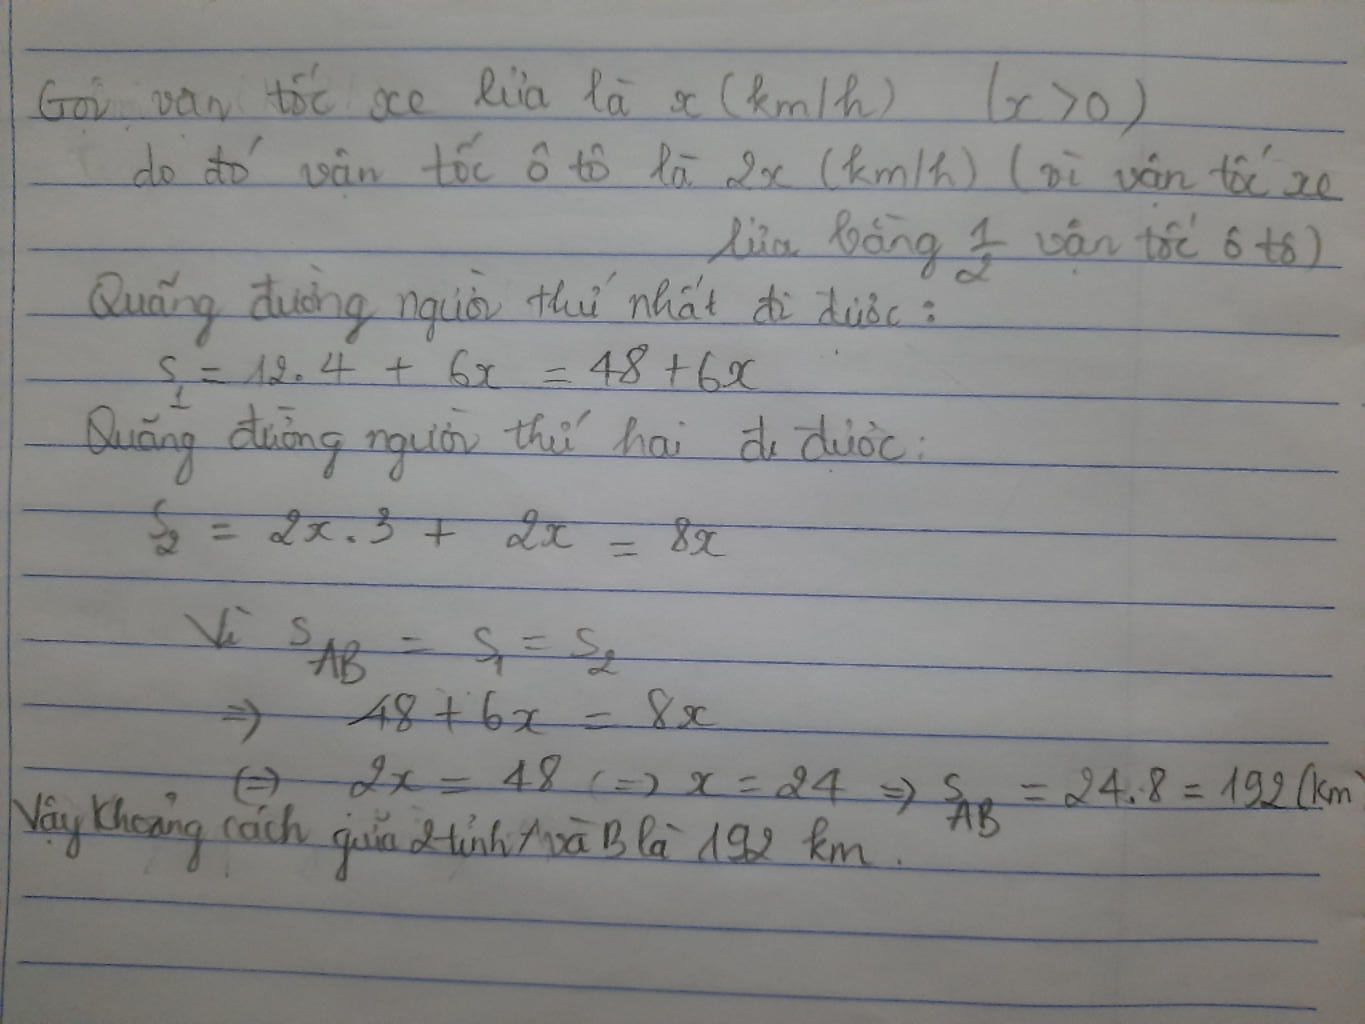 Gọi vận tốc xe lửa là x (km/h) (x > 0)
do đó vận tốc ô tô là 2x (km/h) (vì vận tốc xe
lửa bằng 1/2 vận tốc ô tô)
Quãng đường người thứ nhất đi được:
S₁ = 12.4 + 6x = 48 + 6x
Quãng đường người thứ hai đi được:
S₂ = 2x.3 + 2x = 8x
Vì S_AB = S₁ = S₂
=> 48 + 6x = 8x
(=) 2x = 48 (=) x = 24 => S_AB = 24.8 = 192 (km)
Vậy khoảng cách giữa 2 tỉnh A và B là 192 km.